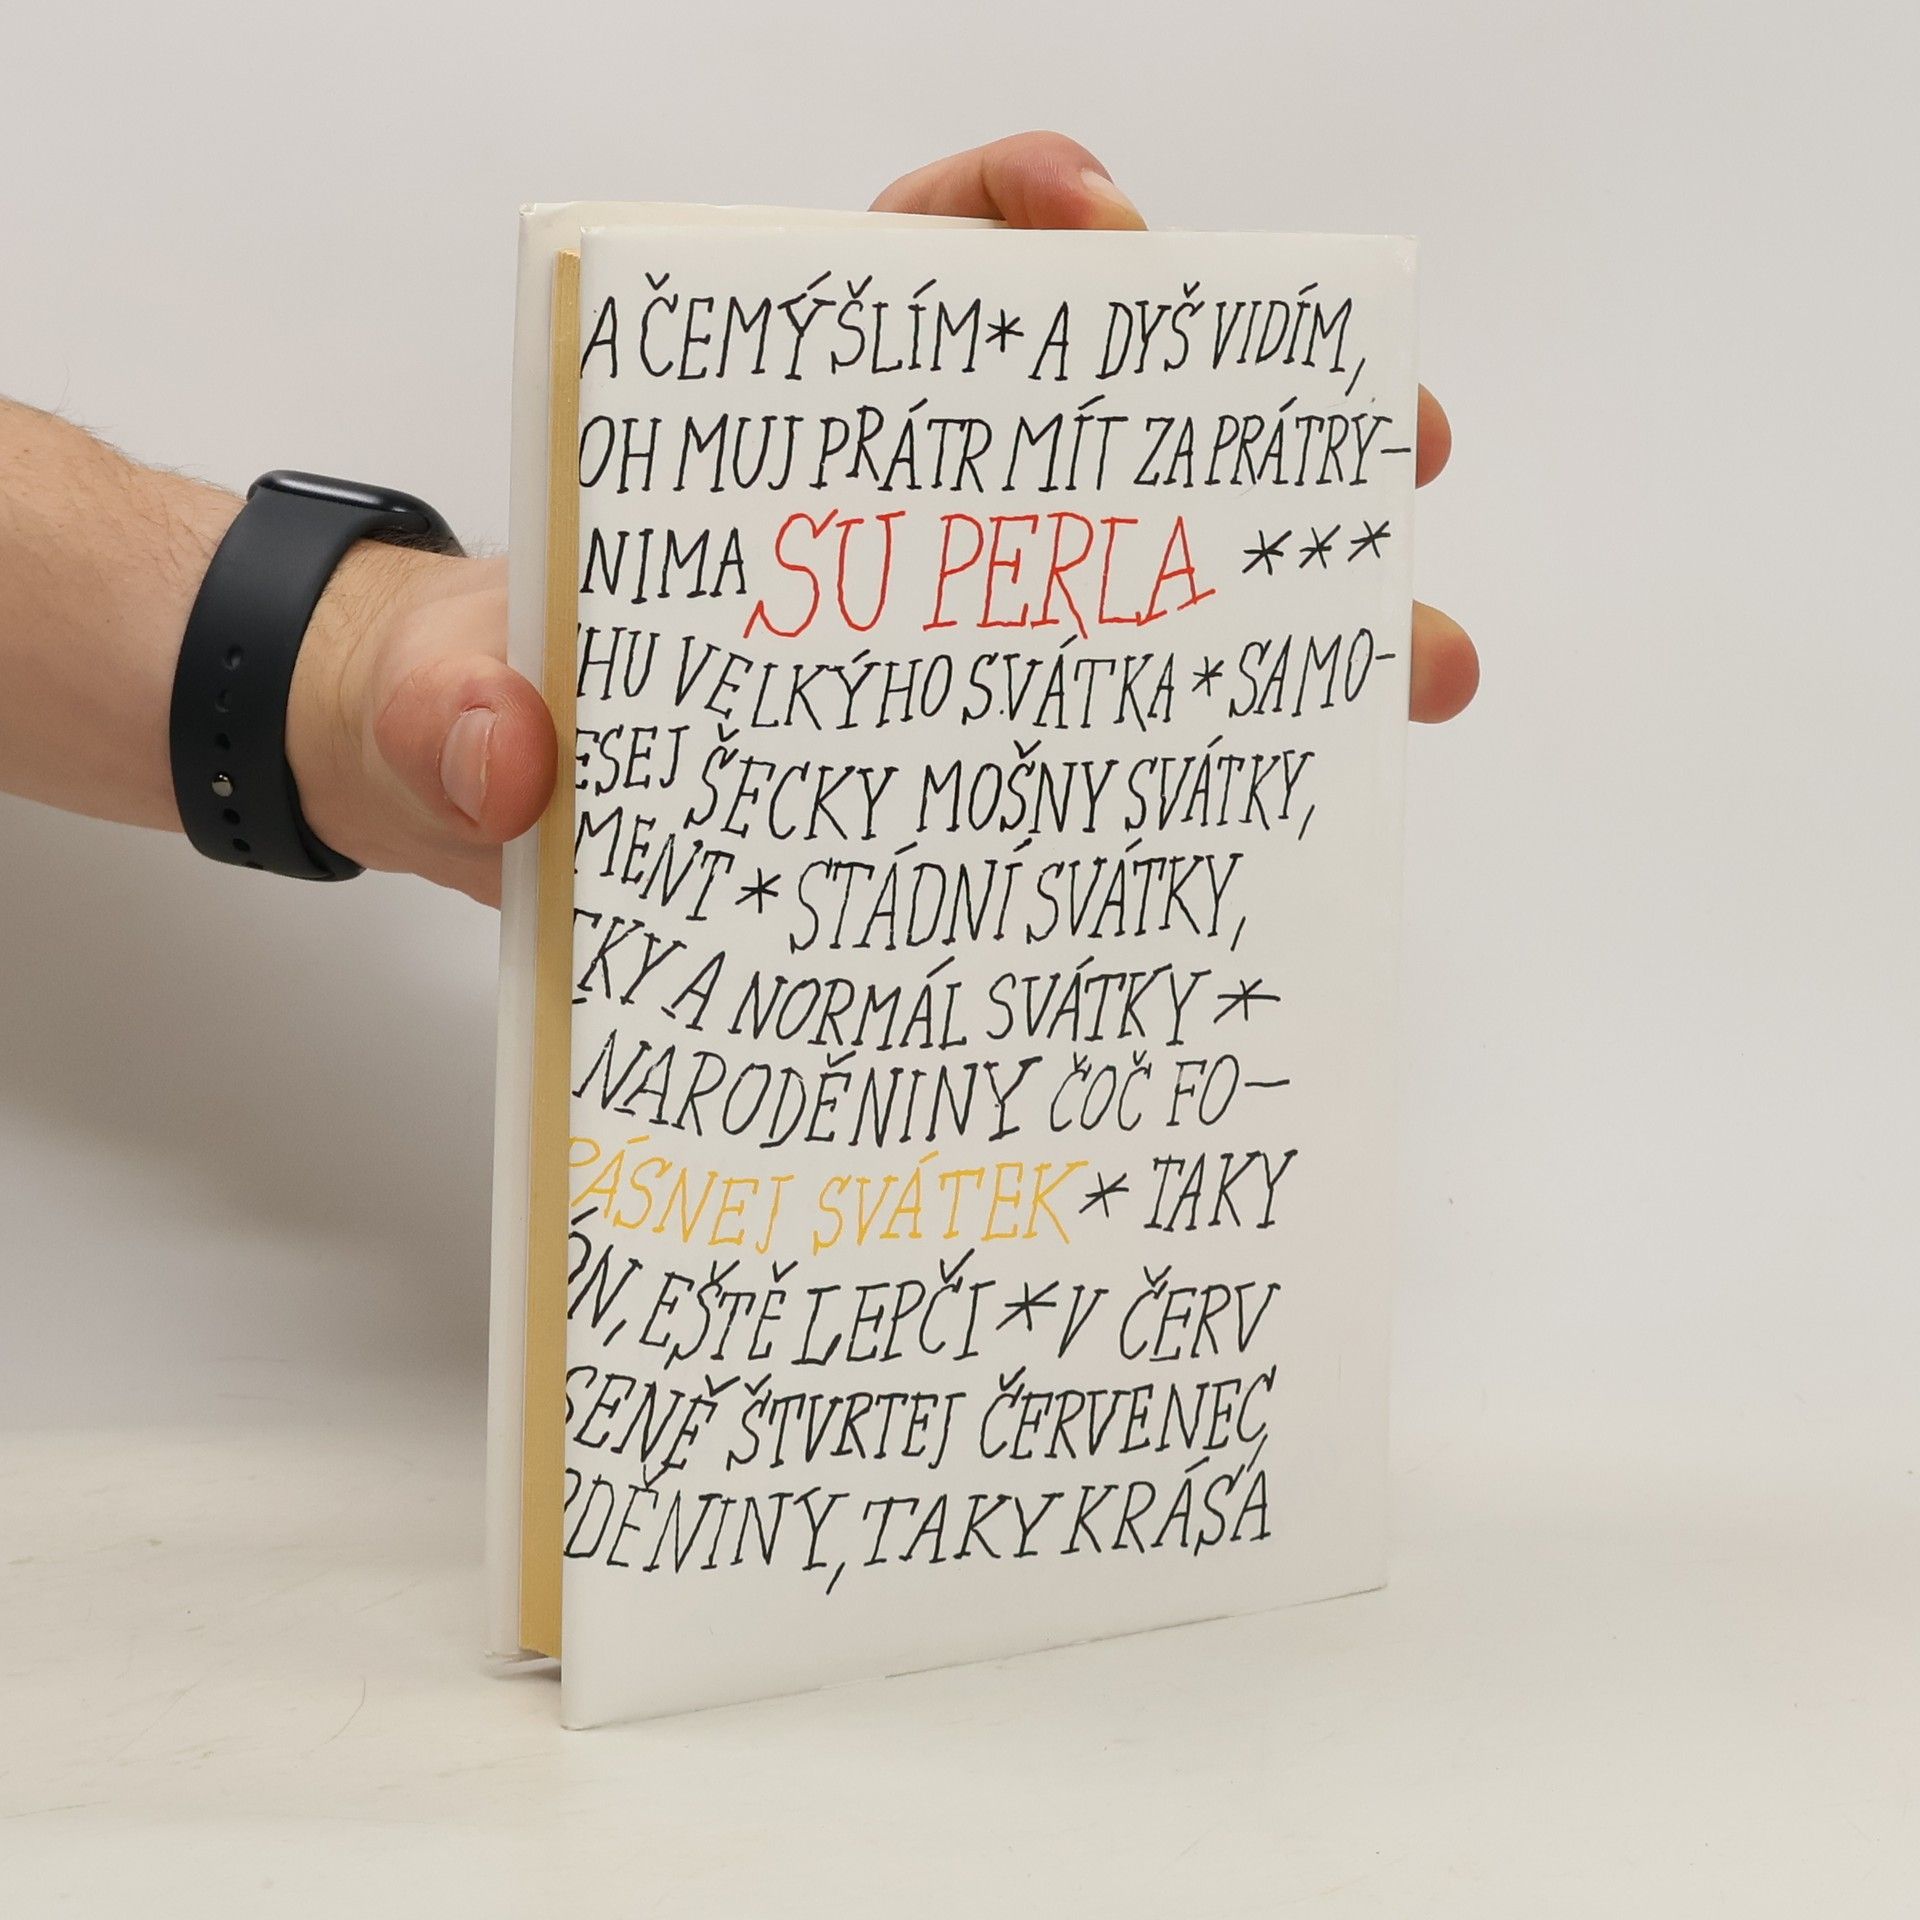 A ČEMÝŠLÍM * A DYŠ VIDÍM,
OH MUJ PRÁTR MÍT ZA PRÁTRÝ-
NIMA SU PERLA ***
HU VELKÝHO SVÁTKA * SAMO-
ESEJ ŠECKY MOŠNY SVÁTKY,
MENT * STÁDNÍ SVÁTKY,
TKY A NORMÁL SVÁTKY *
NARODĚNINY ČOČ FO-
RÁSNEJ SVÁTEK * TAKY
ÓN, EŠTĚ LEPČI * V ČERV
SENĚ ŠTVRTEJ ČERVENEC,
ODĚNINY, TAKY KRÁSÁ